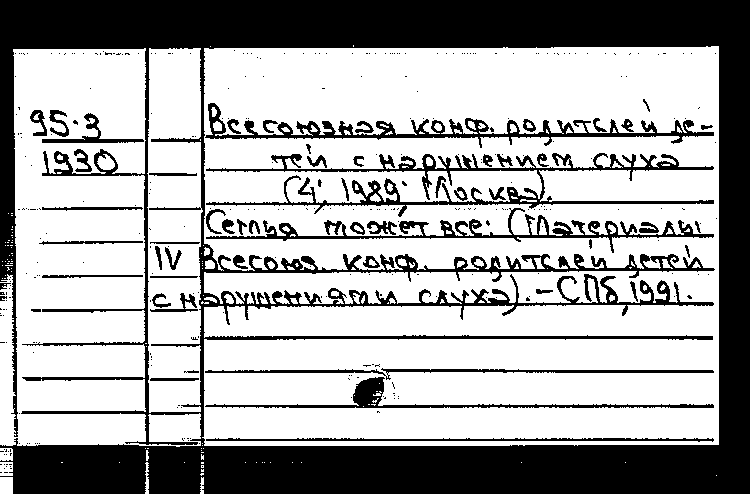 95.3
1930
Всесоюзная конф. родителей де-
тей с нарушением слуха
(4; 1989; Москва).
Семья может все: (Материалы
IV Всесоюз. конф. родителей детей
с нарушениями слуха). - СПб, 1991.